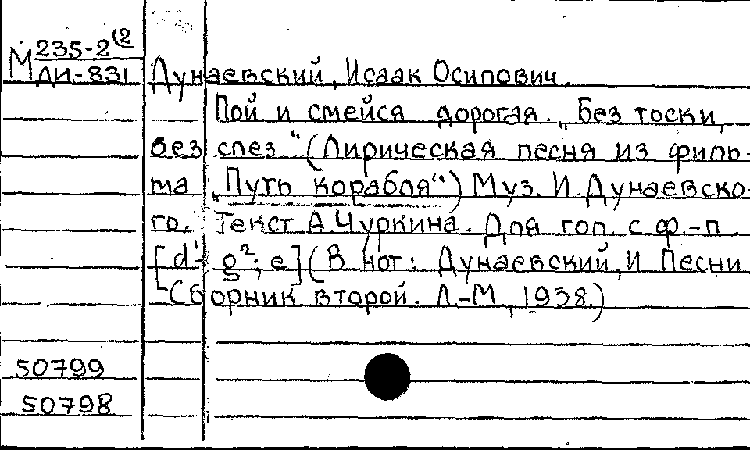 М 235-2(2
ДИ-831
Дунаевский, Исаак Осипович.
Пой и смейся дорогая. „Без тоски,
без слез" (Лирическая песня из филь-
ма „Путь корабля") Муз. И. Дунаевско-
го. Текст А. Чуркина. Для гол. с ф.-п.
[d¹- g²; e] (В нот: Дунаевский, И Песни
Сборник второй. Л.-М., 1938.)
50799
50798